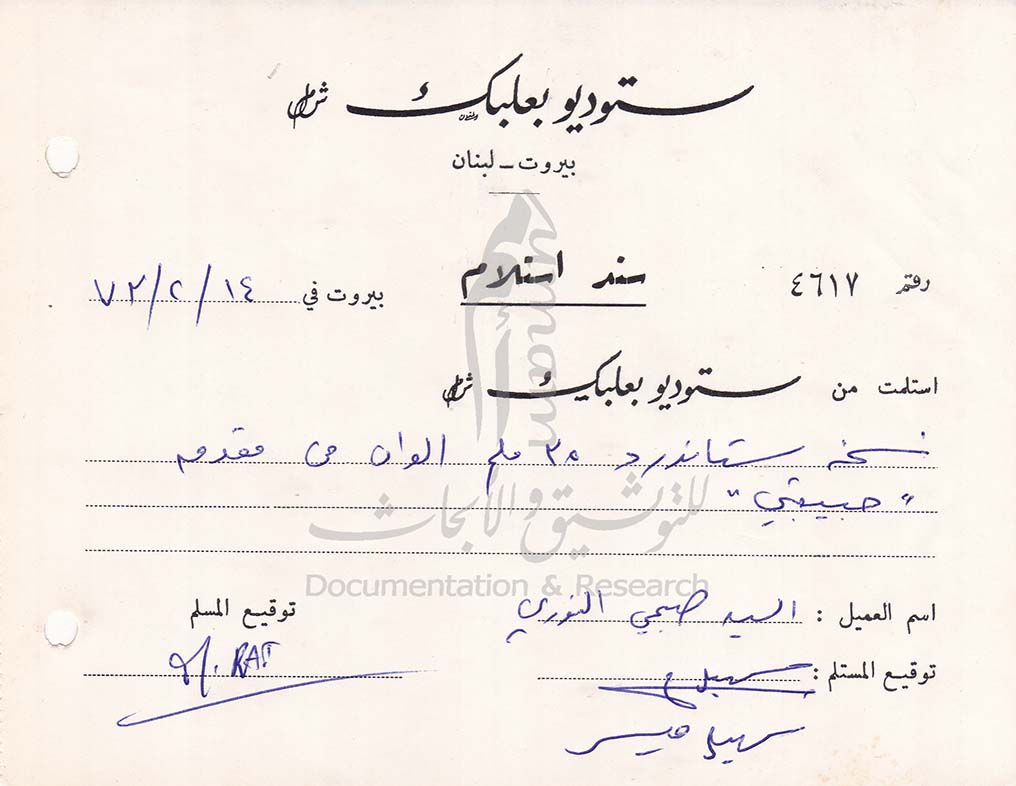 ستوديو بعلبك ش.م.ل
بيروت - لبنان
رقم ٤٦١٧
سند استلام
بيروت في ١٤/٢/٧٣
استلمت من ستوديو بعلبك ش.م.ل
نسخة ستاندرد ٣٥ ملم الوان من مقدمة
"حبيبتي"
اسم العميل : السيد صبحي النوري
توقيع المسلم
M. RAT
توقيع المستلم : سهيل
سهيل
umam
للتوثيق والأبحاث
Documentation & Research